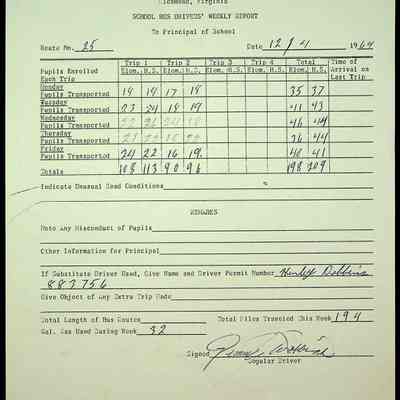 Richmond, Virginia
SCHOOL BUS DRIVERS' WEEKLY REPORT
To Principal of School
Route No. 25 Date 12/4 1964
Trip 1 Trip 2 Trip 3 Trip 4 Total Time of
Pupils Enrolled Elem. H.S. Elem. H.S. Elem. H.S. Elem. H.S. Elem. H.S. Arrival on
Each Trip Last Trip
Monday
Pupils Transported 18 19 17 18 35 37
Tuesday
Pupils Transported 23 24 18 19 41 43
Wednesday
Pupils Transported 46 44
Thursday
Pupils Transported 36 44
Friday
Pupils Transported 24 22 16 19 40 41
Totals 108 113 90 96 198 209
Indicate Unusual Road Conditions
REMARKS
Note Any Misconduct of Pupils
Other Information for Principal
If Substitute Driver Used, Give Name and Driver Permit Number Dobbins
883756
Give Object of Any Extra Trip Made
Total Length of Bus Route Total Miles Traveled This Week 194
Gal. Gas Used During Week 32
Signed
Regular Driver